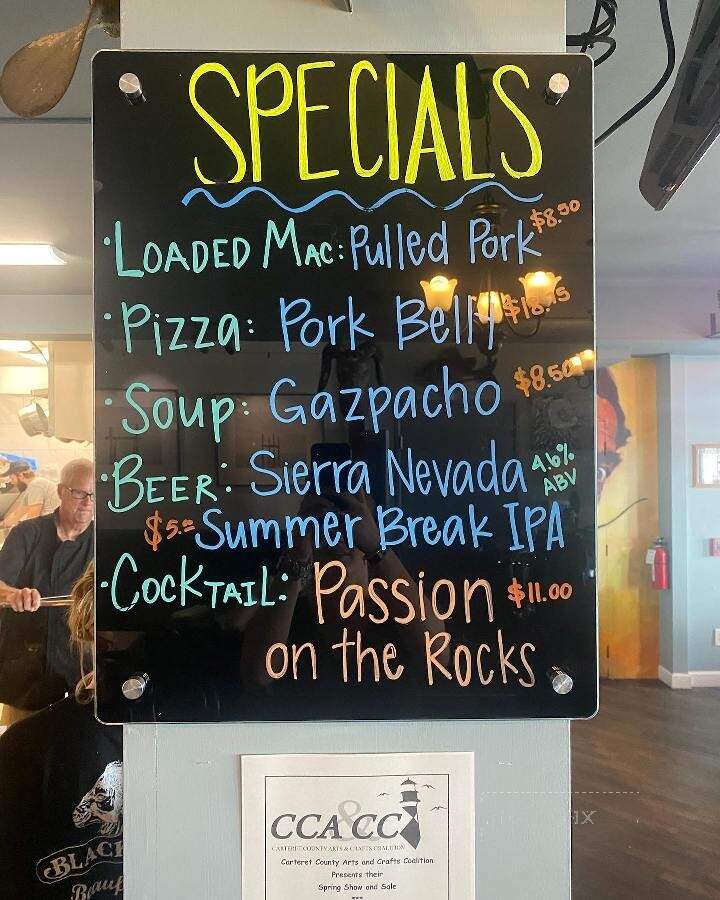 SPECIALS
·LOADED MAC: Pulled Pork $8.50
·Pizza: Pork Belly
·Soup: Gazpacho $8.50
·BEER: Sierra Nevada 4.6% ABV
$5.00 Summer Break IPA
·COCKTAIL: Passion $11.00
on the Rocks
CCA&CC
CARTERET COUNTY ARTS & CRAFTS COALITION
Carteret County Arts and Crafts Coalition
Presents their
Spring Show and Sale
***
BLACK
Beauf